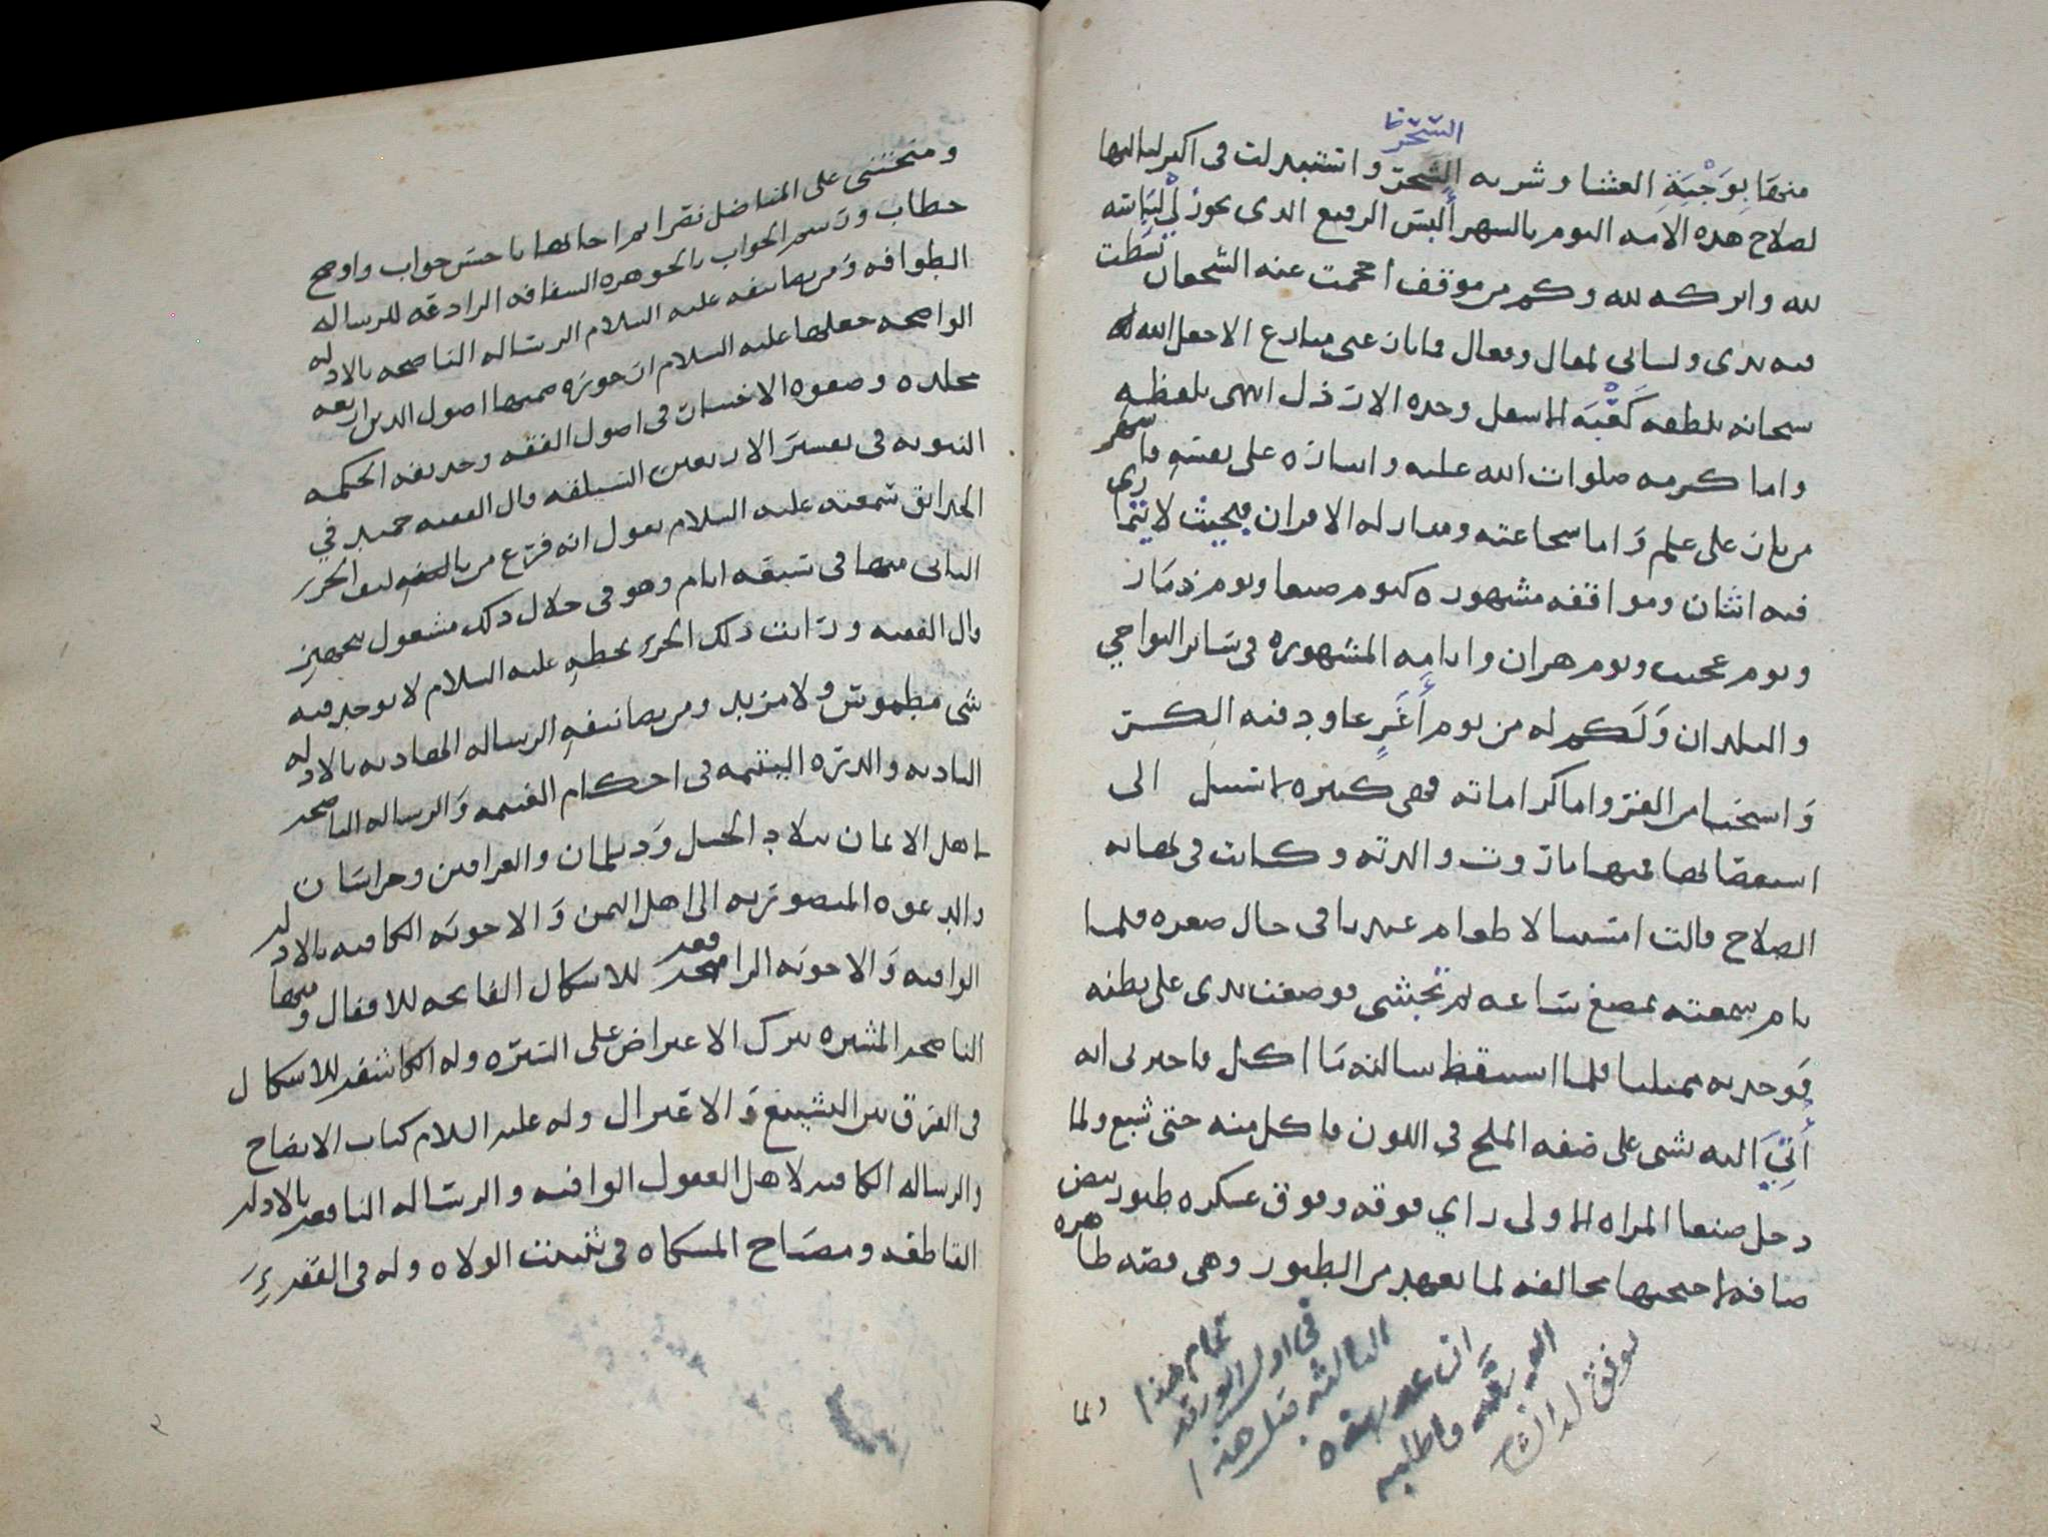 السحر
منها بوجبة العشا وشربه السحر واستبدلت في اكبر لياليها
لصلاح هذه الامه النوم بالسهر ألبس الرفيع الذي يجوز لي لباسه
لله واتركه لله وكم من موقف احجمت عنه الشجعان بسطت
فيه يدي ولساني لمقال وفعال
سبحانه بلطفه وحده
واما كرمه صلوات الله عليه وايثاره على نفسه
من نار على علم وَاما شجاعته ومبادلة الاقران فبحيث لا يتمارى
فيه اثنان ومواقفه مشهوره كيوم صنعا ويوم ذمار
ويوم عجيب ويوم هران وايامه المشهوره في سائر النواحي
والبلدان وَلَكم له من يوم أَغَرٍّ عاود فيه الكر
وَاستحيا من الفر واما كراماته فهي كثيره لا سبيل الى
استقصائها فمنها ما روت والدته وكانت في نهايه
الصلاح قالت امسينا لا طعام عندنا في حال صغره فلما
نام سمعته يمضغ ساعه ثم تجشى فوضعت يدي على بطنه
فوجدته ممتليا فلما استيقظ سالته ما اكل فاخبرني انه
أُتِيَ اليه بشي على صفه الملح في اللون فاكل منه حتى شبع ولما
دخل صنعا المراه الاولى راي فوقه وفوق عسكره طيور بيض
صافه اجنحتها مخالفه لما يعهد من الطيور وهي قصه ظاهره
ولما
تمام هذا
في اول الورقة
الثالثة قبل هذا
ومتحنثي على
خطاب وتسمى الجواب بالجوهره الشفافه الرادعه للرساله
الطوافه وَمن تصانيفه عليه السلام الرساله الناصحه بالادله
الواضحه جعلها عليه السلام ارجوزه ضمنها اصول الدين اربعه
مجلده وصفوه الاختيار في اصول الفقه وحديقه الحكمه
النبويه في تفسير الاربعين السيلقيه قال الفقيه حميد في
الحدائق سمعته عليه السلام يقول انه فرغ من تاليفه ليف الجزء
الثاني منها في تسعه ايام وهو في خلال ذلك مشغول بتجهيز
قال الفقيه ورايت ذلك الجزء بخطه عليه السلام لا يوجد فيه
شي مطموس ولا مزيد ومن تصانيفه الرساله الهاديه بالادله
الباديه والدره اليتيمه في احكام الغنيمه وَالرساله الناصحه
لاهل الايمان ببلاد الجبل وَديلمان والعراقين وخراسان
والدعوه المنصوريه الى اهل اليمن وَالاجوبه الكافيه بالادله
الوافيه وَالاجوبه الرافعه للاشكال الفاتحه للاقفال ومنها
الناصحه المشيره بترك الاعتراض على السيره وله الكاشفه للاشكال
في الفرق بين التشيع وَالاعتزال وله عليه السلام كتاب الايضاح
والرساله الكافيه لاهل العقول الوافيه والرساله النافعه بالادله
القاطعه ومصباح المشكاه في تثبيت الولاه وله في الفقه
٢